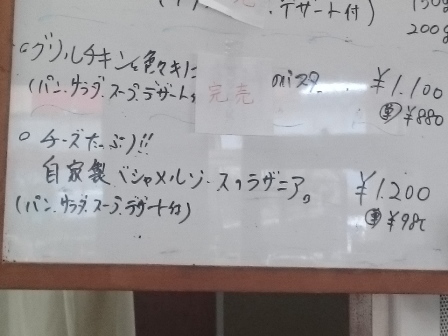 デザート付)
200g
○グリルチキンと色々きのこ
完売
¥1.100
(パン.サラダ.スープ.デザート付
単 ¥880
○ チーズたっぷり!!
自家製ベシャメルソースのラザニア。
¥1.200
(パン.サラダ.スープ.デザート付)
単 ¥980